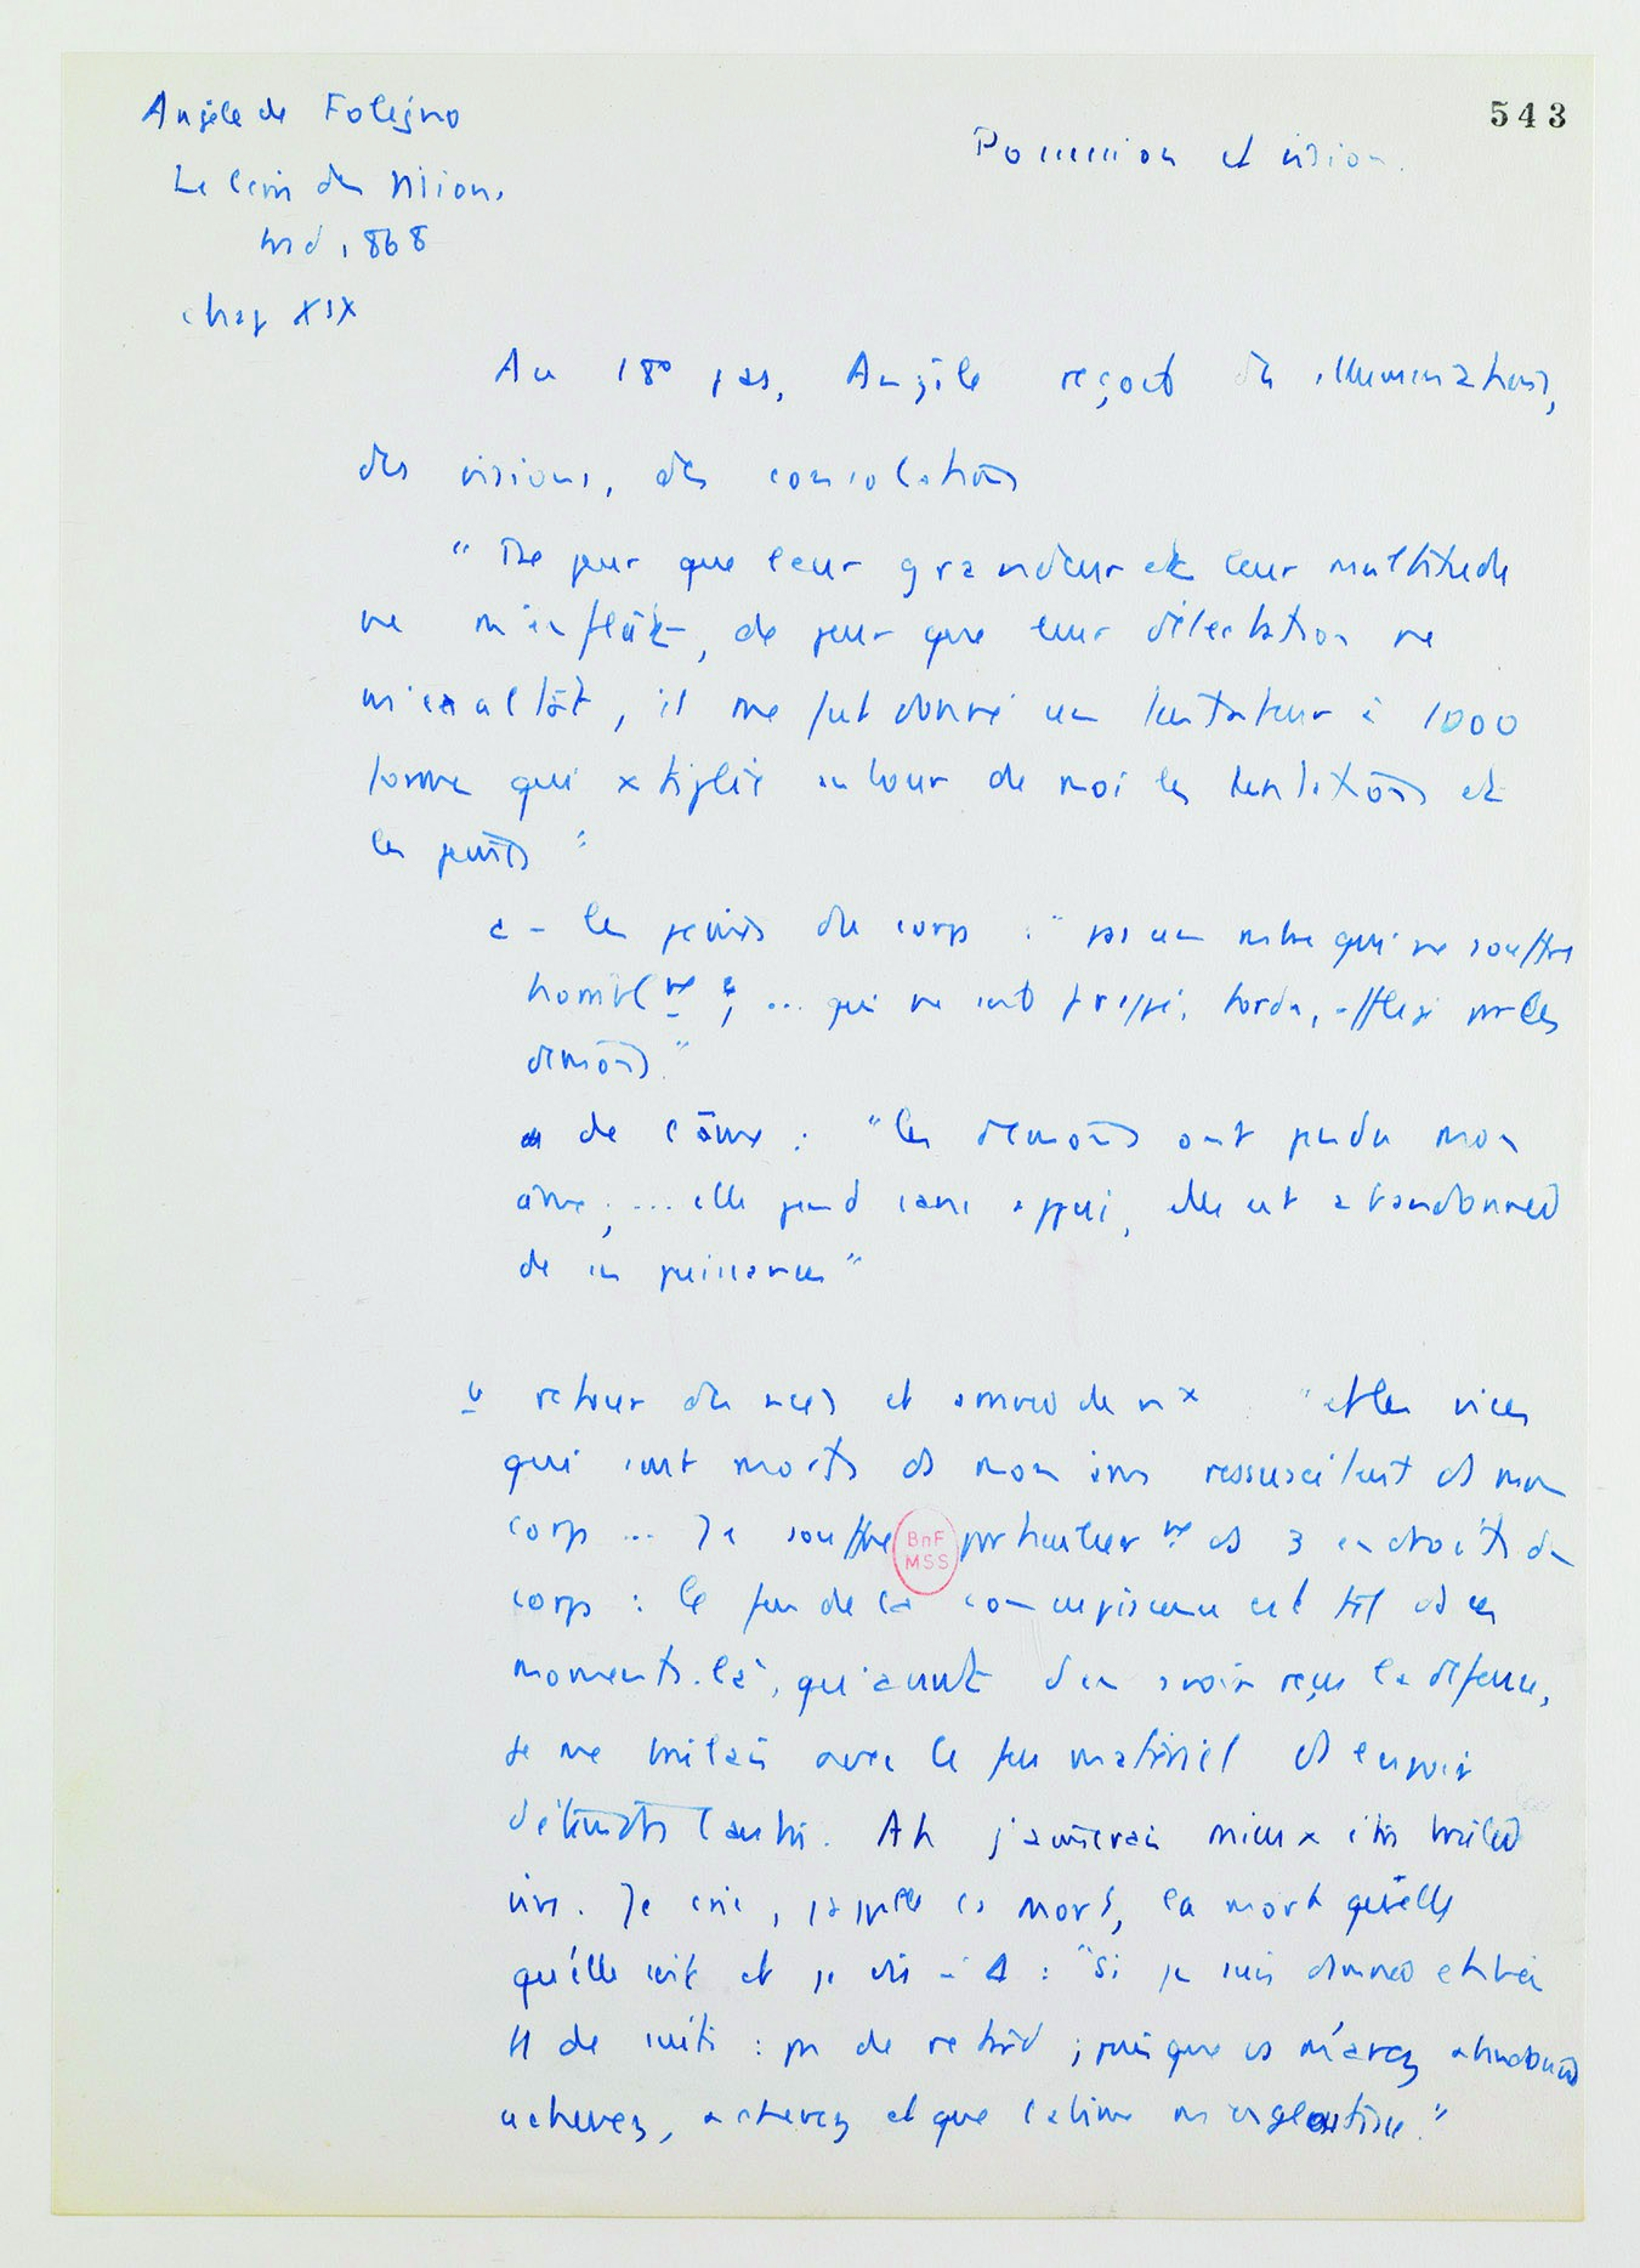 543
Angèle de Foligno
Possession et vision.
Le livre des visions
trad, 1868
chap XIX
Au 18° pas, Angèle reçoit des illuminations,
des visions, des consolatiõs
" De peur que leur grandeur et leur multitude
ne m'enflât, de peur que leur délectation ne
m'exaltât, il me fut donné un tentateur à 1000
formes qui xtiplie autour de moi les tentatiõs et
les peines "
a - les peines du corps : " pas un mbre qui ne souffre
horriblᵐᵉ ; ... qui ne soit frappé, tordu, affligé par les
démõs."
de l'âme : " les démõs ont pendu mon
âme ; ... elle pend sans appui, elle est abandonnée
de ses puissances "
b retour des vices et de nx " et les vices
qui sont morts ds mon âme ressuscitent ds mon
corps ... Je souffre particulierᵐᵉ ds 3 endroits du
BnF
MSS
corps : le feu de la concupiscence est tel ds ces
moments-là, qu'avant d'en avoir reçu la défense,
je me brûlais avec le feu matériel ds l'espoir
d'éteindre l'autre. Ah j'aimerais mieux être brûlée
vive. Je crie, j'appelle la mort, la mort quelle
qu'elle soit et je dis à Δ : "Si je suis damnée
de suite : pas de retard ; puisque vs m'avez abandonnée
achevez, achevez et que l'abîme m'engloutisse."